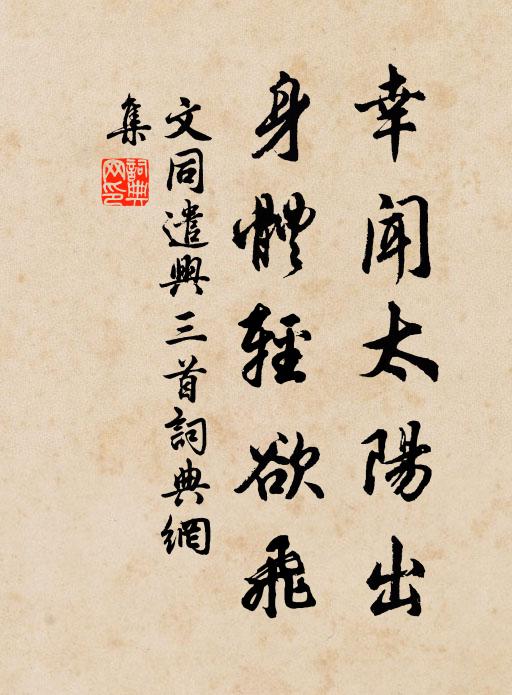 幸聞太陽出
身體輕欲飛
文同遣興三首詞典網
集
詞典
网印